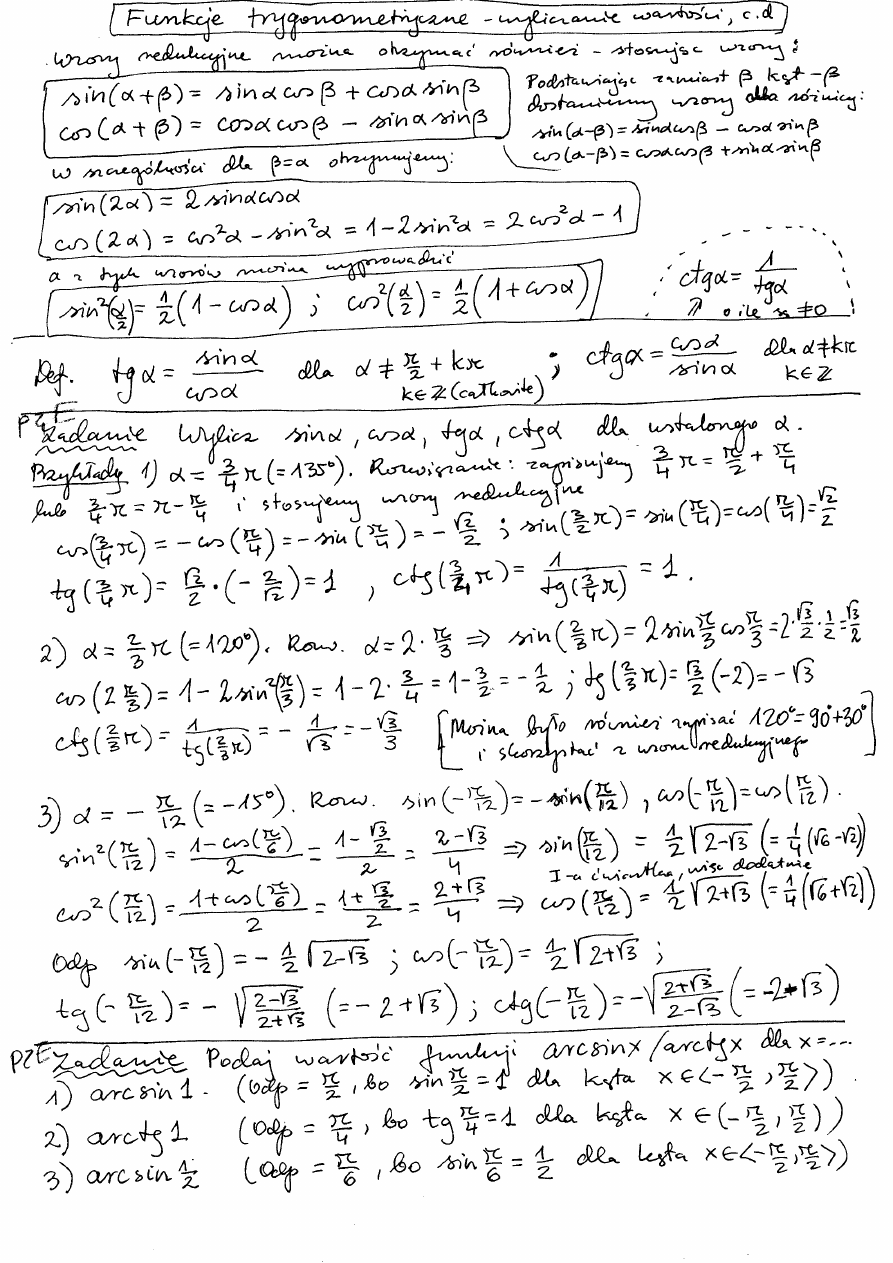 Funkcje trygonometryczne - wyliczanie wartości, c.d
Wzory redukcyjne można otrzymać również - stosując wzory:
sin(α+β) = sinα cosβ + cosα sinβ
cos(α+β) = cosα cosβ - sinα sinβ
Podstawiając zamiast β kąt -β
dostaniemy wzory dla różnicy:
sin(α-β) = sinα cosβ - cosα sinβ
cos(α-β) = cosα cosβ + sinα sinβ
w szczególności dla β=α otrzymujemy:
sin(2α) = 2 sinα cosα
cos(2α) = cos²α - sin²α = 1-2sin²α = 2cos²α - 1
a z tych wzorów można wyprowadzić
sin²(α/2) = 1/2 (1 - cosα) ; cos²(α/2) = 1/2 (1 + cosα)
ctgα = 1/tgα
⇗ o ile są ≠0
Def. tgα = sinα/cosα dla α ≠ π/2 + kπ k∈ℤ (całkowite) ; ctgα = cosα/sinα dla α≠kπ k∈ℤ
PZE
Zadanie Wylicz sinα, cosα, tgα, ctgα dla ustalonego α.
Przykłady 1) α = 3/4 π (=135°). Rozwiązanie: zapisujemy 3/4 π = π/2 + π/4
lub 3/4 π = π - π/4 i stosujemy wzory redukcyjne
cos(3/4 π) = -cos(π/4) = -sin(π/4) = -√2/2 ; sin(3/2 π) = sin(π/4) = cos(π/4) = √2/2
tg(3/4 π) = √2/2 · (-2/√2) = 1 , ctg(3/4 π) = 1/tg(3/4 π) = 1.
2) α = 2/3 π (=120°). Rozw. α = 2·π/3 ⇒ sin(2/3 π) = 2 sin π/3 cos π/3 = 2·√3/2·1/2 = √3/2
cos(2 π/3) = 1-2sin²(π/3) = 1-2·3/4 = 1-3/2 = -1/2 ; tg(2/3 π) = √3/2 (-2) = -√3
ctg(2/3 π) = 1/tg(2/3 π) = -1/√3 = -√3/3
[Można było również zapisać 120°=90°+30°
i skorzystać z wzoru redukcyjnego]
3) α = -π/12 (=-15°). Rozw. sin(-π/12) = -sin(π/12), cos(-π/12) = cos(π/12).
sin²(π/12) = (1-cos(π/6))/2 = (1-√3/2)/2 = (2-√3)/4 ⇒ sin(π/12) = 1/2 √(2-√3) (=1/4(√6-√2))
I-a ćwiartka, więc dodatnie
cos²(π/12) = (1+cos(π/6))/2 = (1+√3/2)/2 = (2+√3)/4 ⇒ cos(π/12) = 1/2 √(2+√3) (=1/4(√6+√2))
Odp sin(-π/12) = -1/2 √(2-√3) ; cos(-π/12) = 1/2 √(2+√3) ;
tg(-π/12) = -√((2-√3)/(2+√3)) (= -2+√3) ; ctg(-π/12) = -√((2+√3)/(2-√3)) (= -2-√3)
PZE Zadanie Podaj wartość funkcji arcsinx / arctgx dla x=...
1) arcsin 1. (Odp = π/2, bo sin π/2 = 1 dla kąta x∈<-π/2, π/2>)
2) arctg 1 (Odp = π/4, bo tg π/4 = 1 dla kąta x∈(-π/2, π/2))
3) arcsin 1/2 (Odp = π/6, bo sin π/6 = 1/2 dla kąta x∈<-π/2, π/2>)